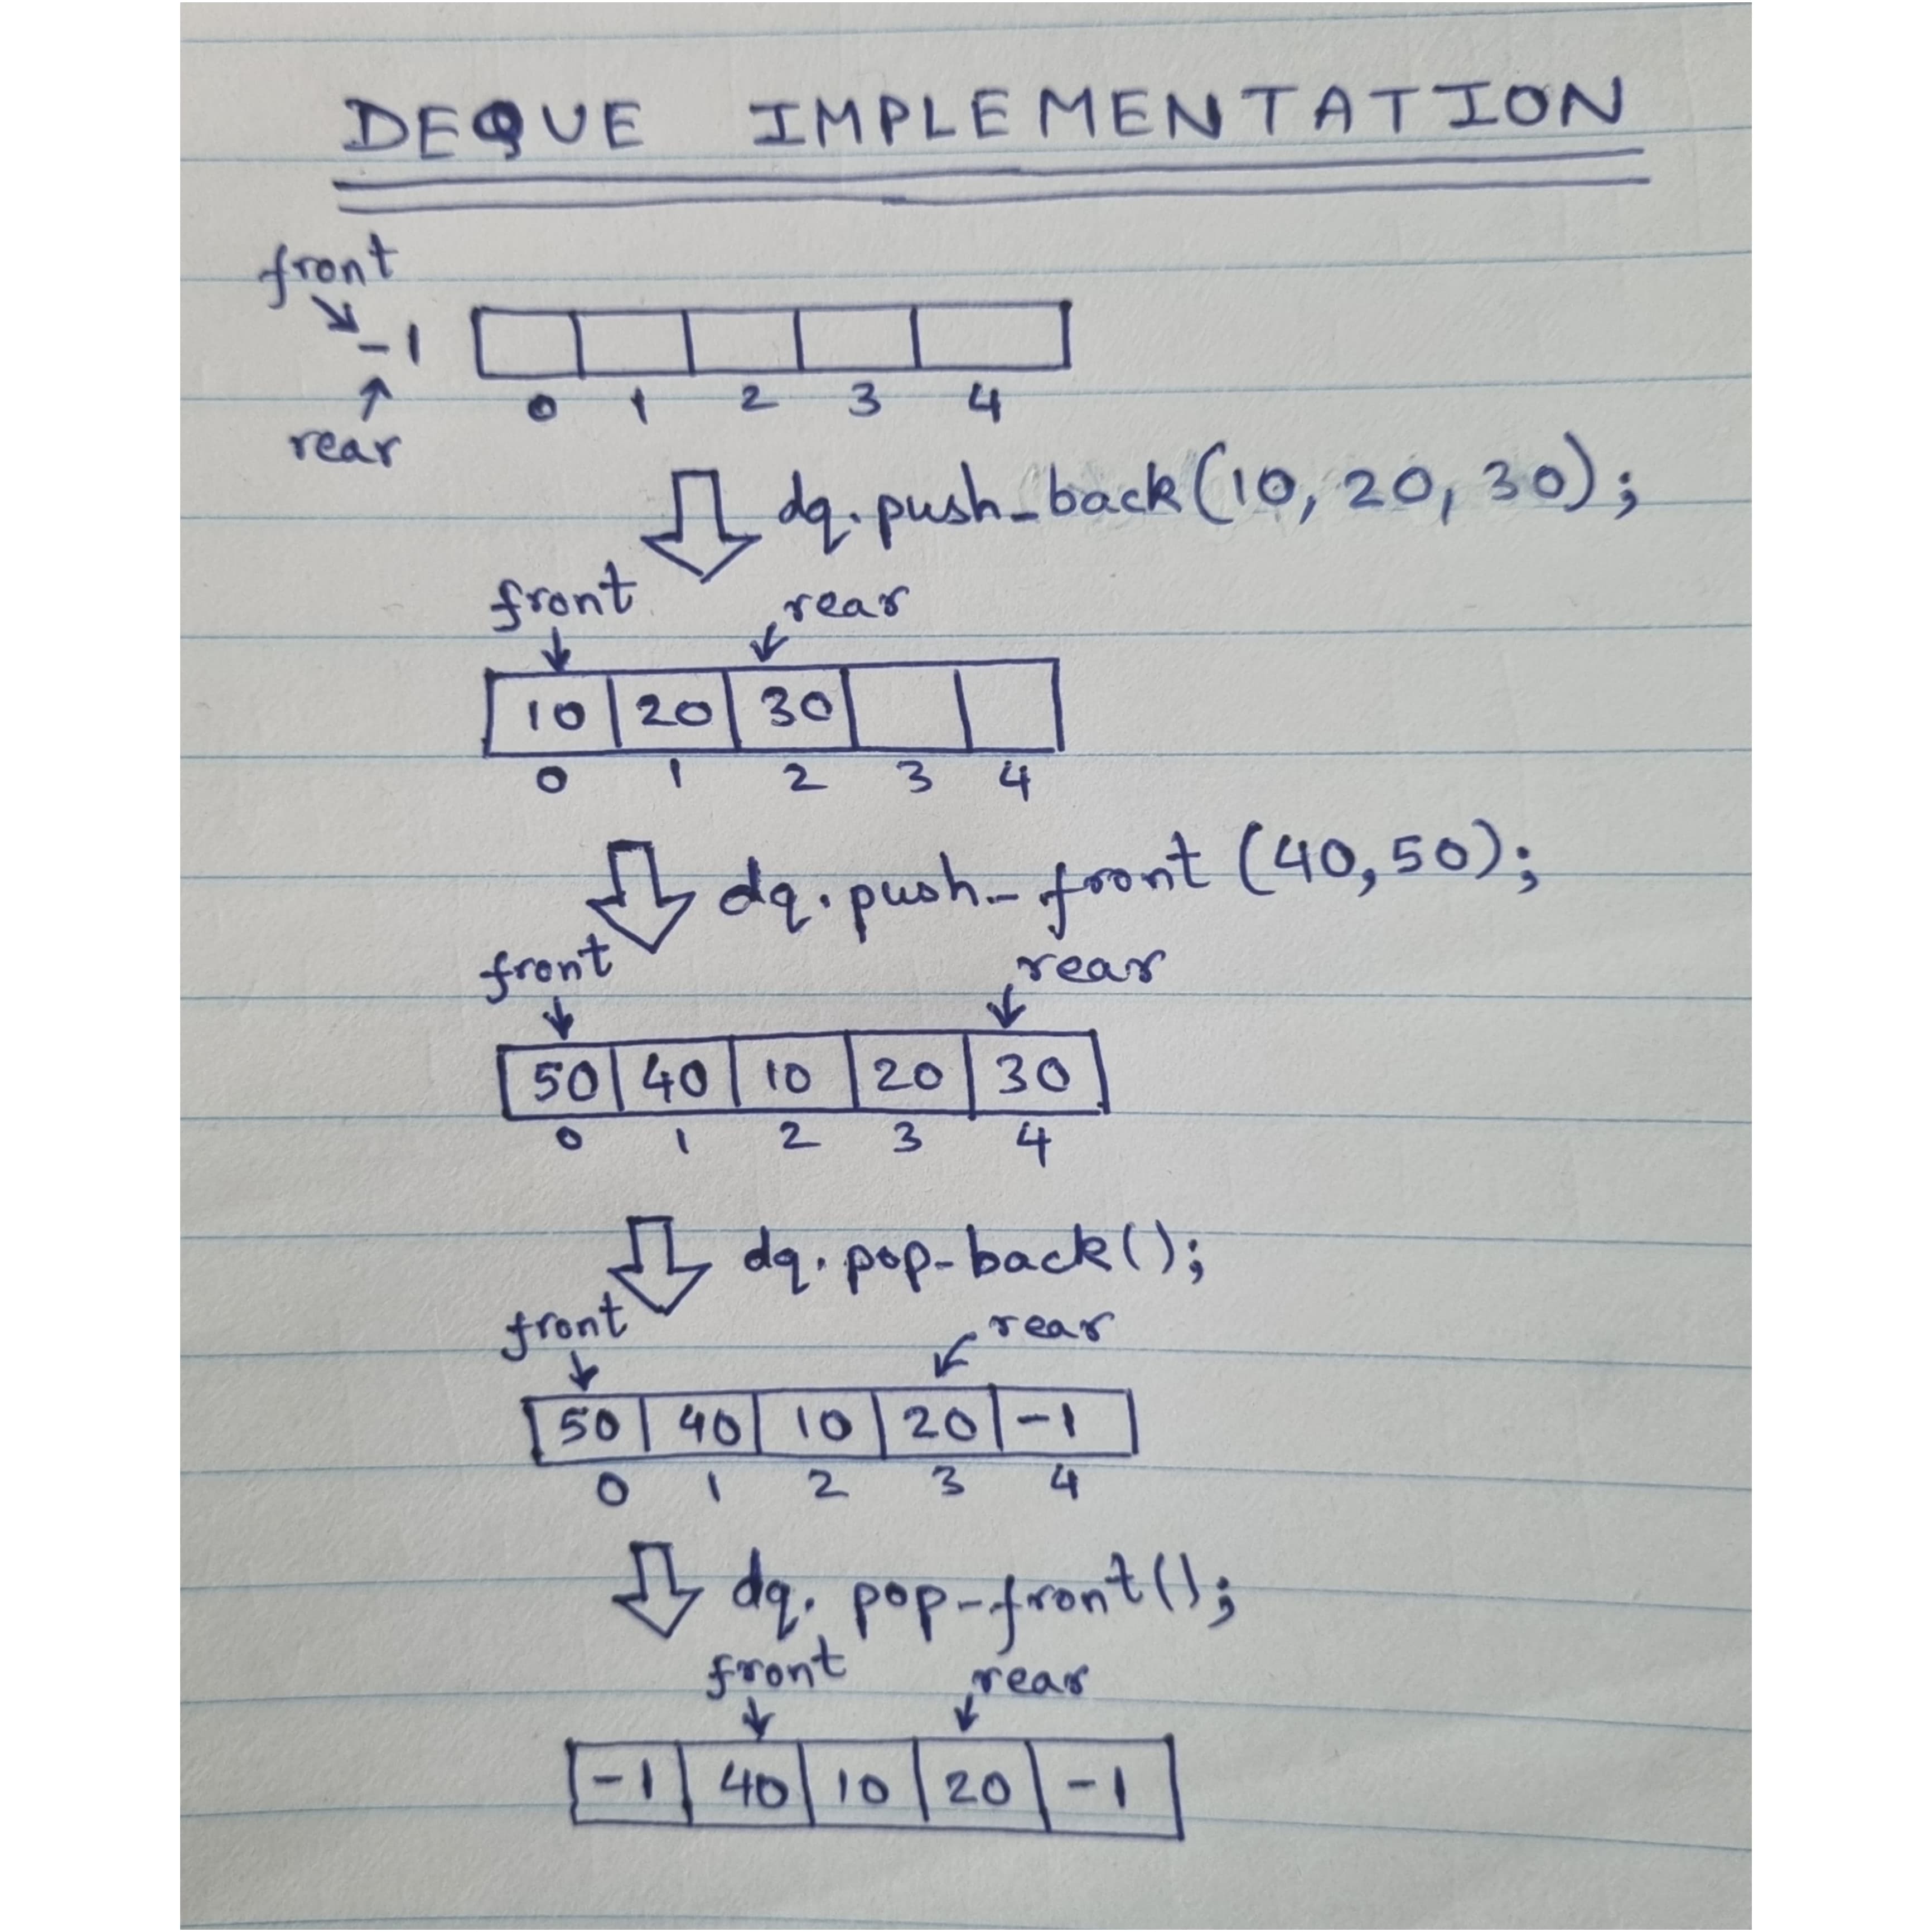 DEQUE IMPLEMENTATION
front
-1
0 1 2 3 4
rear
dq.push_back(10, 20, 30);
front rear
10 20 30
0 1 2 3 4
dq.push_front (40,50);
front rear
50 40 10 20 30
0 1 2 3 4
dq.pop_back();
front rear
50 40 10 20 -1
0 1 2 3 4
dq. pop_front();
front rear
-1 40 10 20 -1